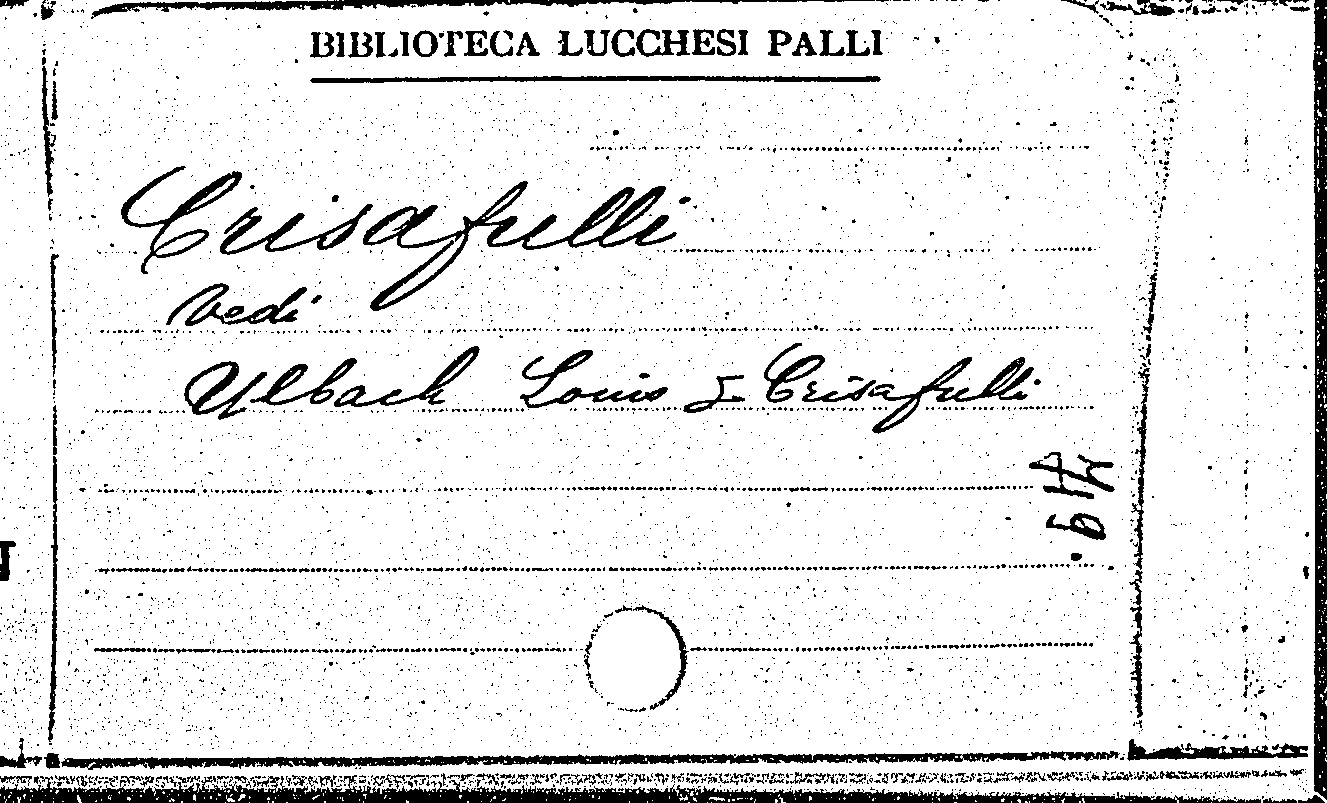 BIBLIOTECA LUCCHESI PALLI
Crisafulli
Vedi
Ulbach Louis & Crisafulli